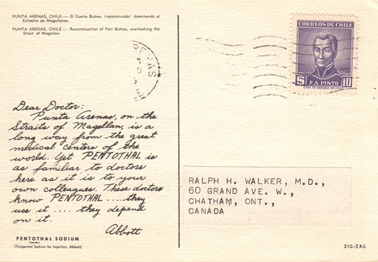 PUNTA ARENAS, CHILE — El Fuerte Bulnes (reconstruido) dominando el
Estrecho de Magallanes.
PUNTA ARENAS, CHILE — Reconstruction of Fort Bulnes, overlooking the
Strait of Magellan.
ARENAS
CORREOS DE CHILE
$ F. A. PINTO 10
Dear Doctor:
Punta Arenas, on the
Straits of Magellan, is a
long way from the great
medical centers of the
world. Yet PENTOTHAL is
as familiar to doctors
here as it is to your
own colleagues. These doctors
know PENTOTHAL.....they
use it .... they depend
on it.
Abbott
RALPH H. WALKER, M.D.,
60 GRAND AVE. W.,
CHATHAM, ONT.,
CANADA
PENTOTHAL SODIUM
(Thiopental Sodium for Injection, Abbott)